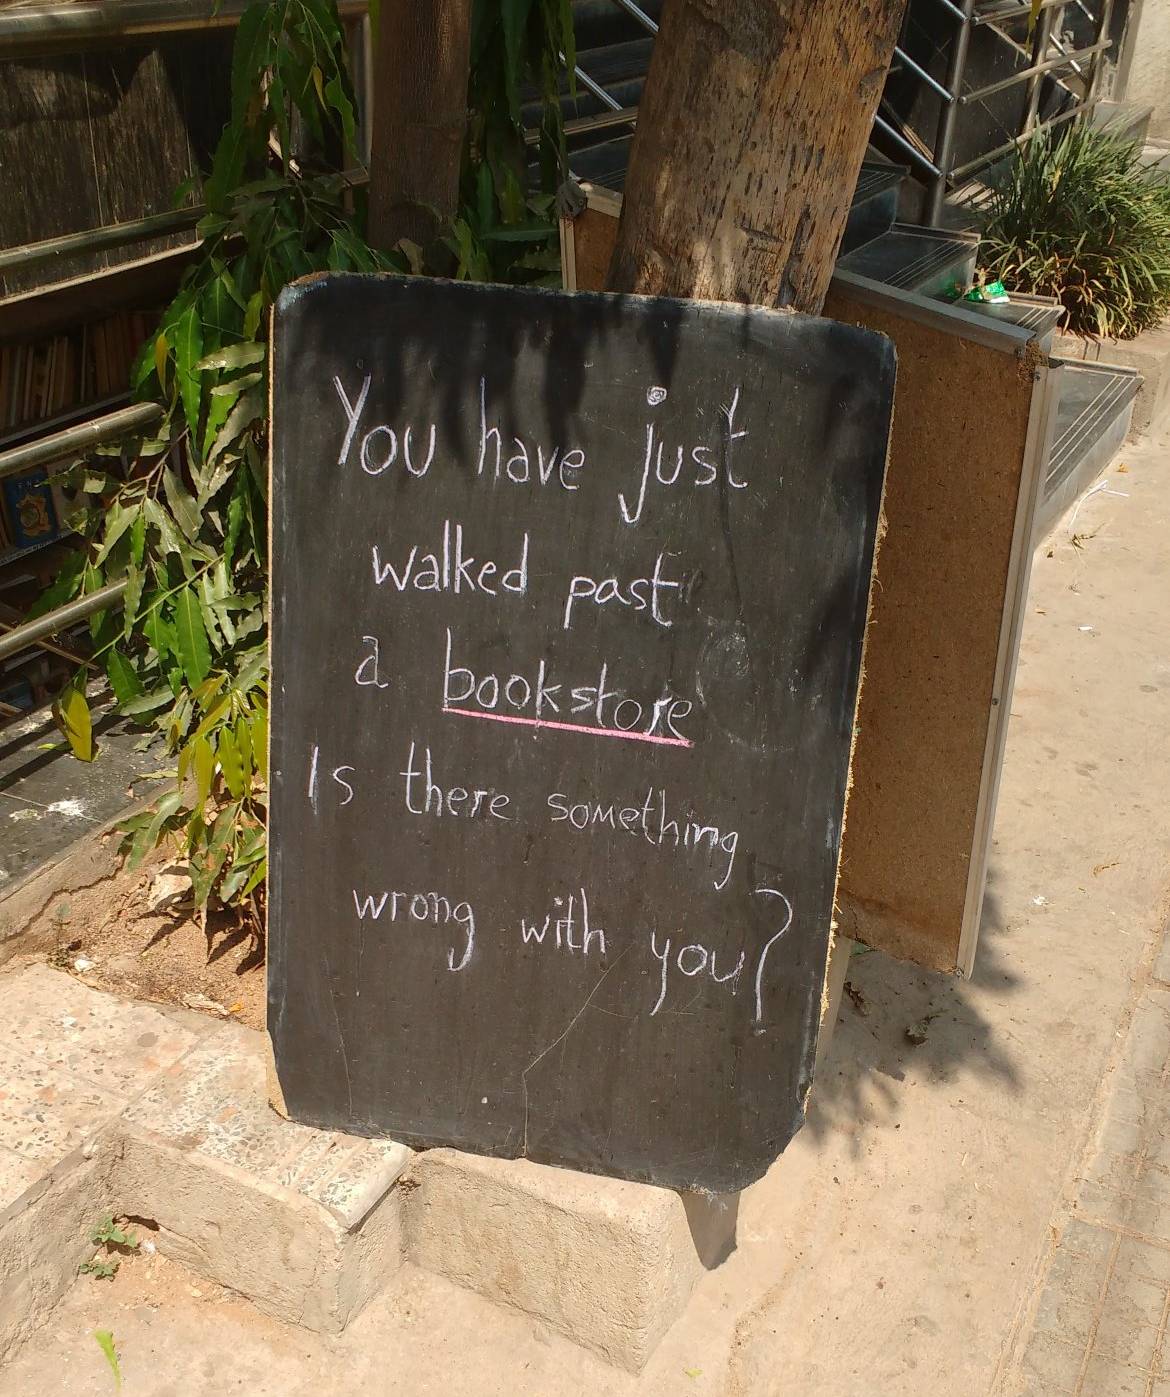 You have just
walked past
a bookstore
Is there something
wrong with you?